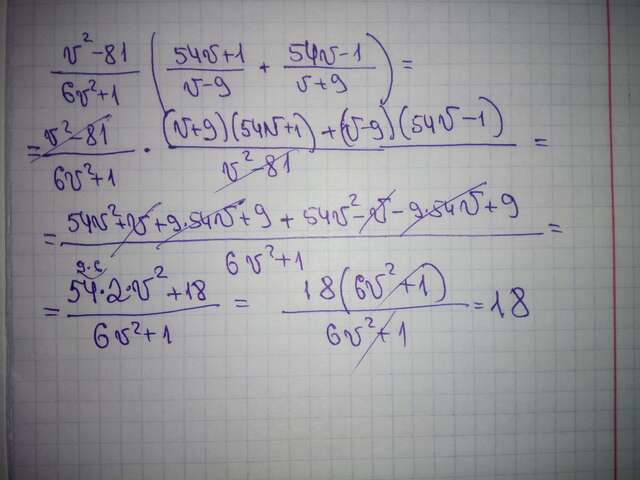 v²-81/6v²+1 (54v+1/v-9 + 54v-1/v+9) =
= v²-81/6v²+1 · (v+9)(54v+1)+(v-9)(54v-1)/v²-81 =
= 54v²+v+9·54v+9+54v²-v-9·54v+9/6v²+1 =
9·6
= 54·2·v²+18/6v²+1 = 18(6v²+1)/6v²+1 = 18